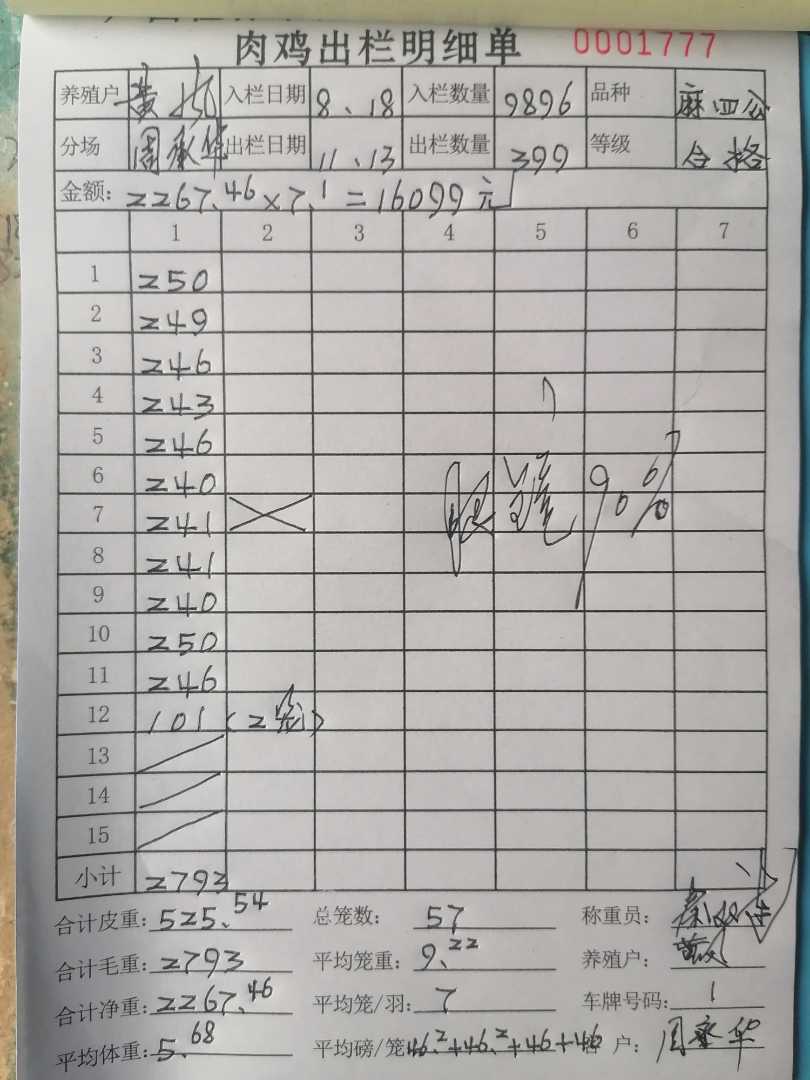 肉鸡出栏明细单 0001777
养殖户 黄 入栏日期 8.18 入栏数量 9896 品种 麻四公
分场 周承华 出栏日期 11.13 出栏数量 399 等级 合格
金额: 2267.46×7.1=16099元
1 2 3 4 5 6 7
1 250
2 249
3 246
4 243
5 246
6 240
7 241
8 241
9 240
10 250
11 246
12 101(2笼)
13
14
15
小计 2793
9%
合计皮重: 525.54 总笼数: 57 称重员:
合计毛重: 2793 平均笼重: 9.22 养殖户:
合计净重: 2267.46 平均笼/羽: 7 车牌号码: 1
平均体重: 5.68 平均磅/笼 46.2+46.2+46+46 户: 周承华